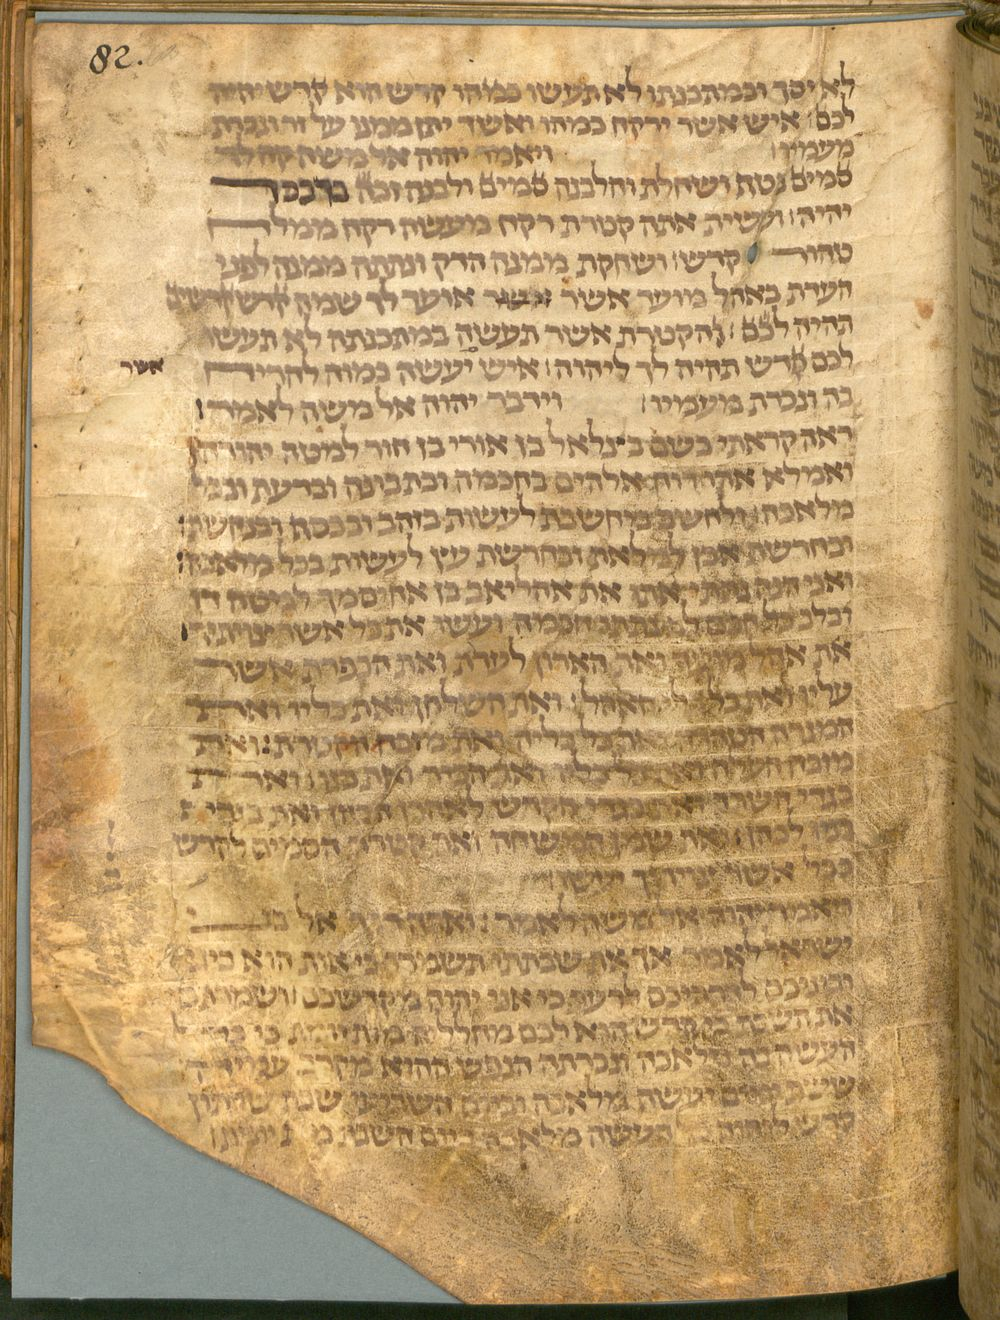 82.
לא יסך ובמתכנתו לא תעשו כמהו קדש הוא קדש יהיה
לכם׃ איש אשר ירקח כמהו ואשר יתן ממנו על זר ונכרת
מעמיו׃ ויאמר יהוה אל משה קח לך
סמים נטף ושחלת וחלבנה סמים ולבנה זכה בד בבד
יהיה׃ ועשית אתה קטרת רקח מעשה רקח ממלח
טהור קדש׃ ושחקת ממנה הדק ונתתה ממנה לפני
העדת באהל מועד אשר אועד לך שמה קדש קדשים
תהיה לכם׃ והקטרת אשר תעשה במתכנתה לא תעשו
לכם קדש תהיה לך ליהוה׃ איש יעשה כמוה להריח
אשר
בה ונכרת מעמיו׃ וידבר יהוה אל משה לאמר׃
ראה קראתי בשם בצלאל בן אורי בן חור למטה יהודה׃
ואמלא אתו רוח אלהים בחכמה ובתבונה ובדעת ובכל
מלאכה׃ ולחשב מחשבת לעשות בזהב ובכסף ובנחשת׃
ובחרשת אבן למלאת ובחרשת עץ לעשות בכל מלאכה׃
ואני הנה נתתי אתו את אהליאב בן אחיסמך למטה דן
ובלב כל חכם לב נתתי חכמה ועשו את כל אשר צויתיך׃
את אהל מועד ואת הארון לעדת ואת הכפרת אשר
עליו ואת כל כלי האהל׃ ואת השלחן ואת כליו ואת
המנרה הטהרה ואת כל כליה ואת מזבח הקטרת׃ ואת
מזבח העלה ואת כל כליו ואת הכיור ואת כנו׃ ואת
בגדי השרד ואת בגדי הקדש לאהרן הכהן ואת בגדי
בניו לכהן׃ ואת שמן המשחה ואת קטרת הסמים לקדש
ככל אשר צויתיך יעשו׃
ויאמר יהוה אל משה לאמר׃ ואתה דבר אל בני
ישראל לאמר אך את שבתתי תשמרו כי אות הוא ביני
וביניכם לדרתיכם לדעת כי אני יהוה מקדשכם׃ ושמרתם
את השבת כי קדש הוא לכם מחלליה מות יומת כי כל
העשה בה מלאכה ונכרתה הנפש ההוא מקרב עמיה׃
ששת ימים יעשה מלאכה וביום השביעי שבת שבתון
קדש ליהוה כל העשה מלאכה ביום השבת מות יומת׃